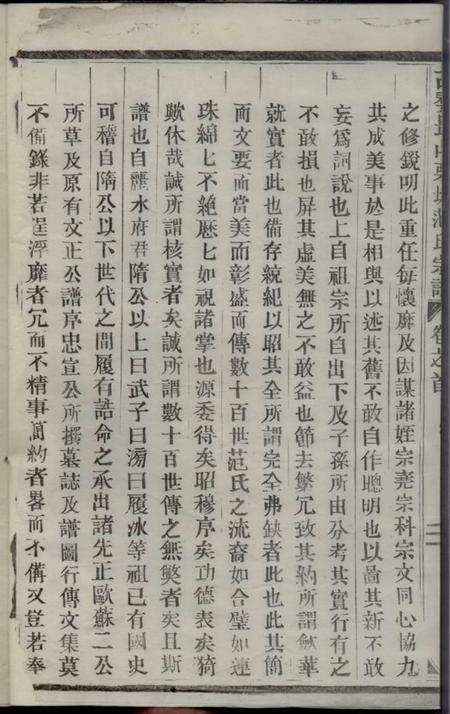 之修鋭明此重任每懷靡及因謀諸姪宗堯宗科宗文同心協力
共成美事於是相與以述其舊不敢自作聰明也以啚其新不敢
妄爲詞說也上自祖宗所自出下及子孫所由分考其實行有之
不敢損也屏其虛美無之不敢益也節去繁冗致其約所謂斂華
就實者此也備存統紀以昭其全所謂完全弗缺者此也此其簡
而文要而當美而彰盛而傳數十百世范氏之流裔如合璧如連
珠綿匕不絶歷匕如視諸掌也源委得矣昭穆序矣功德表矣猗
歟休哉誠所謂核實者矣誠所謂數十百世傳之無斁者矣且斯
譜也自麗水府君隋公以上曰武子曰滂曰履冰等祖已有國史
可稽自隋公以下世代之間履有誥命之承出諸先正歐蘇二公
所草及原有文正公譜序忠宣公所撰墓誌及譜圖行傳文集莫
不備錄非若浮靡者冗而不精事簡約者畧而不備又豈若奉
氏宗譜 卷之首